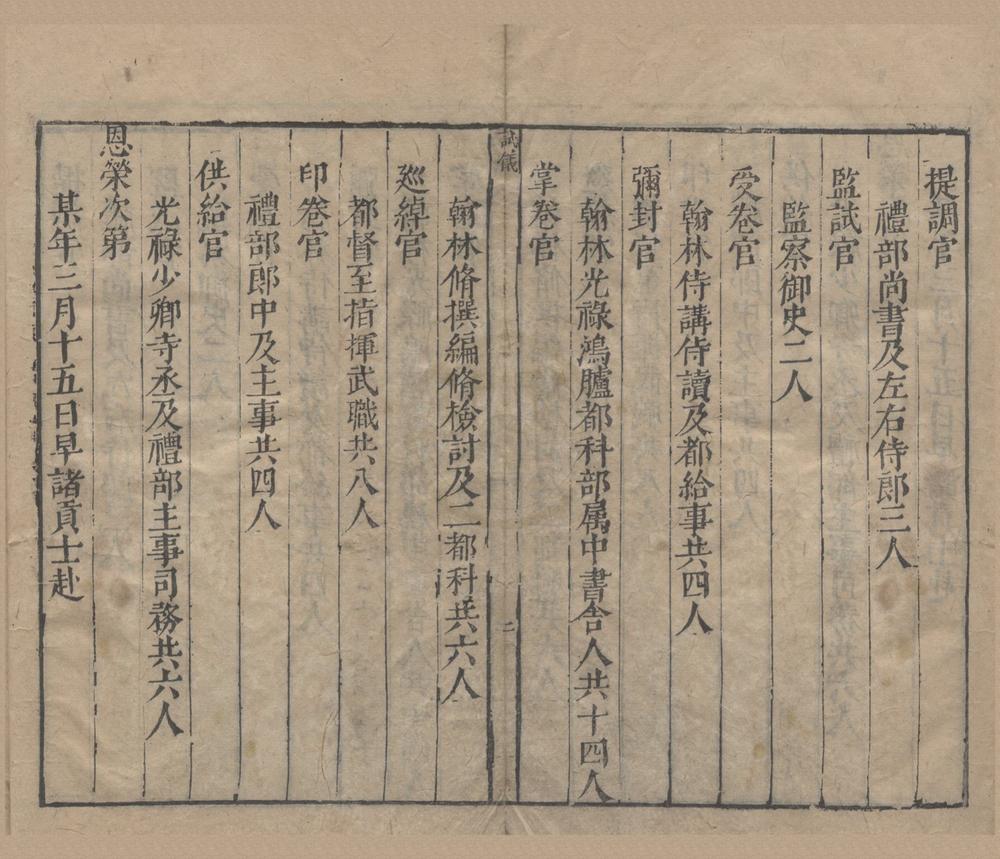 提調官
禮部尚書及左右侍郎三人
監試官
監察御史二人
受卷官
翰林侍講侍讀及都給事共四人
彌封官
翰林光祿鴻臚都科部属中書舍人共十四人
掌卷官
試儀
二
翰林脩撰編脩檢討及二都科共六人
巡綽官
都督至指揮武職共八人
印卷官
禮部郎中及主事共四人
供給官
光祿少卿寺丞及禮部主事司務共六人
恩榮次第
某年三月十五日早諸貢士赴